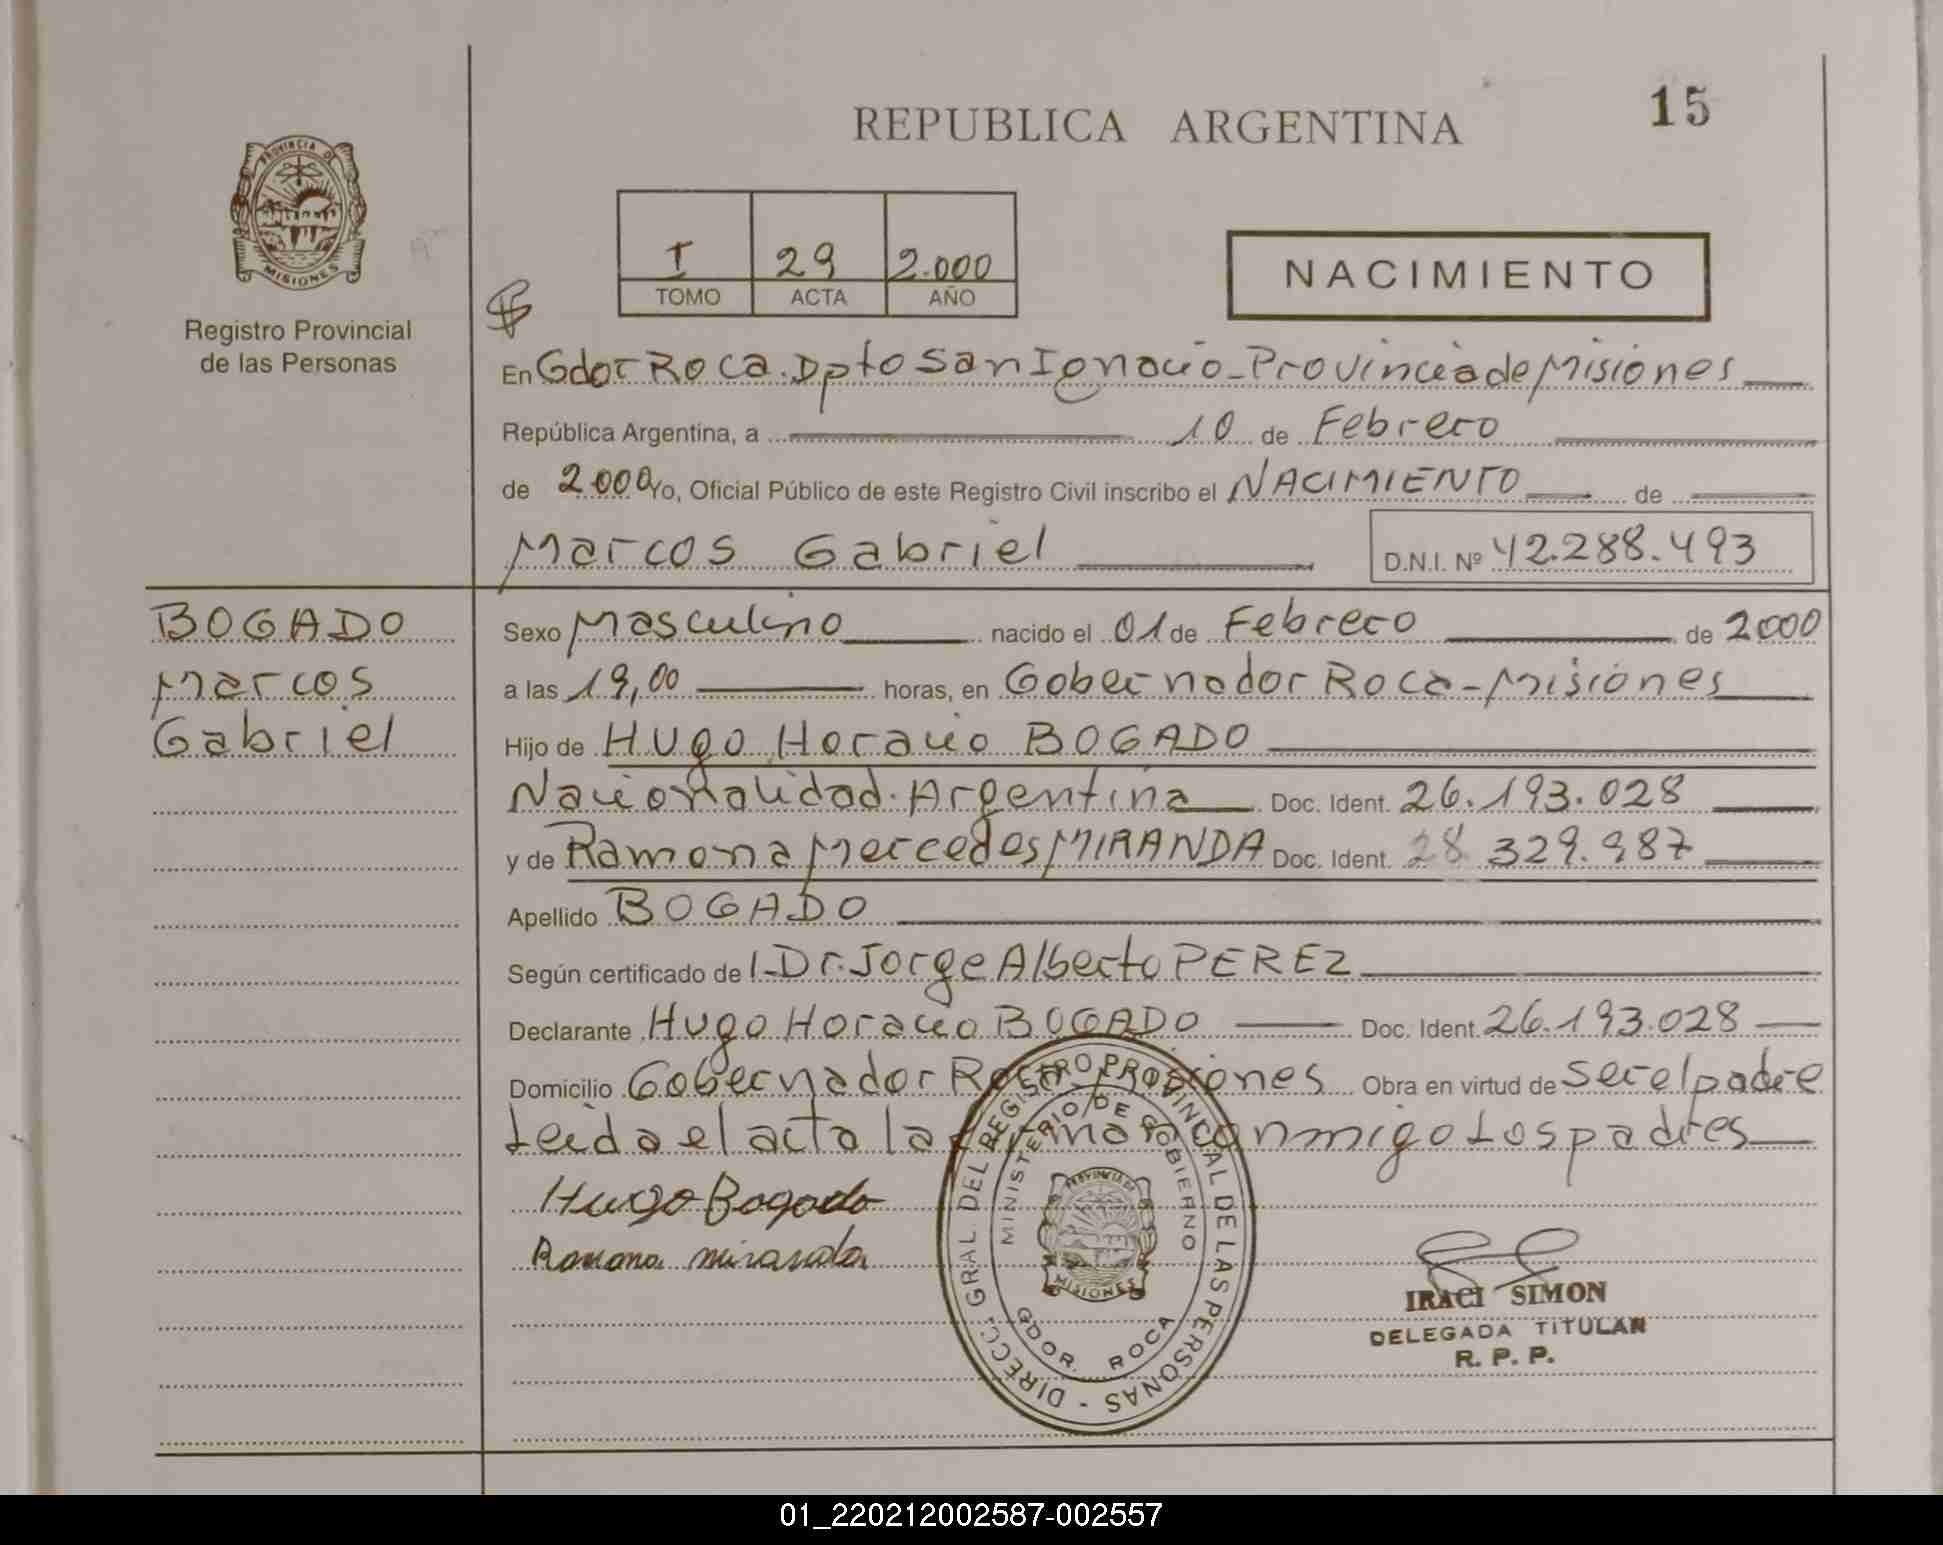 REPUBLICA ARGENTINA
15
PROVINCIA DE
MISIONES
Registro Provincial
de las Personas
I 29 2.000
TOMO ACTA AÑO
NACIMIENTO
En Gdor Roca. Dpto San Ignacio - Provincia de Misiones
República Argentina, a 10 de Febrero
de 2000 Yo, Oficial Público de este Registro Civil inscribo el NACIMIENTO de
Marcos Gabriel
D.N.I. Nº 42.288.493
BOGADO
Marcos
Gabriel
Sexo Masculino nacido el 01 de Febrero de 2000
a las 19,00 horas, en Gobernador Roca - Misiones
Hijo de Hugo Horacio BOGADO
Nacionalidad. Argentina Doc. Ident. 26.193.028
y de Ramona Mercedes MIRANDA Doc. Ident. 28 329.987
Apellido BOGADO
Según certificado de l- Dr. Jorge Alberto PEREZ
Declarante Hugo Horacio BOGADO Doc. Ident. 26.193.028
Domicilio Gobernador Roca - Misiones Obra en virtud de ser el padre
Leida el acta la firman conmigo Los padres
Hugo Bogado
Ramona miranda
DIRECC. GRAL. DEL REGISTRO PROVINCIAL DE LAS PERSONAS -
MINISTERIO DE GOBIERNO
PROVINCIA DE
MISIONES
GDOR. ROCA
IRACI SIMON
DELEGADA TITULAR
R. P. P.
01_220212002587-002557